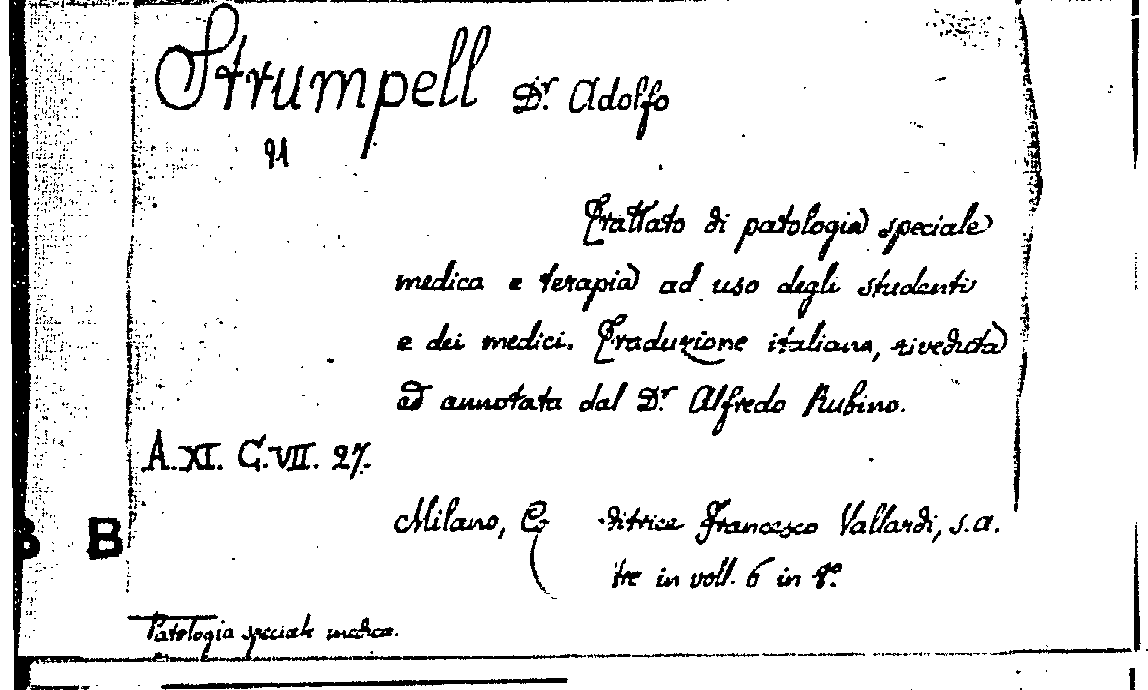 Strumpell Dr. Adolfo
91
Trattato di patologia speciale
medica e terapia ad uso degli studenti
e dei medici. Traduzione italiana, riveduta
ed annotata dal Dr. Alfredo Rubino.
A.XI. C.VII. 27.
Milano, E ditrice Francesco Vallardi, s.a.
tre in voll. 6 in 8°.
B
Patologia speciale medica.